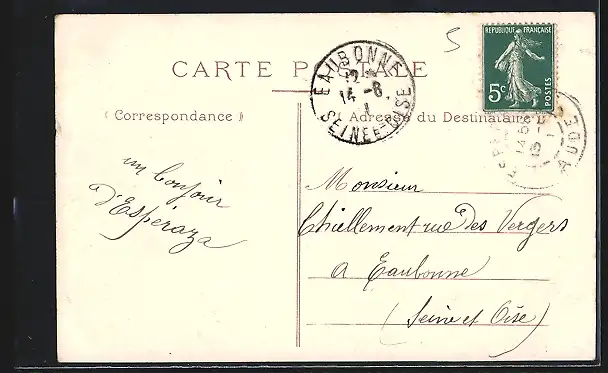 RÉPUBLIQUE FRANÇAISE
5c
POSTES
CARTE POSTALE
EAUBONNE
14 -8
SEINE-ET-OISE
AUDE
Correspondance
Adresse du Destinataire
un bonjour
d'Espéraza
Monsieur
Chiellement rue des Vergers
a Eaubonne
(Seine et Oise)